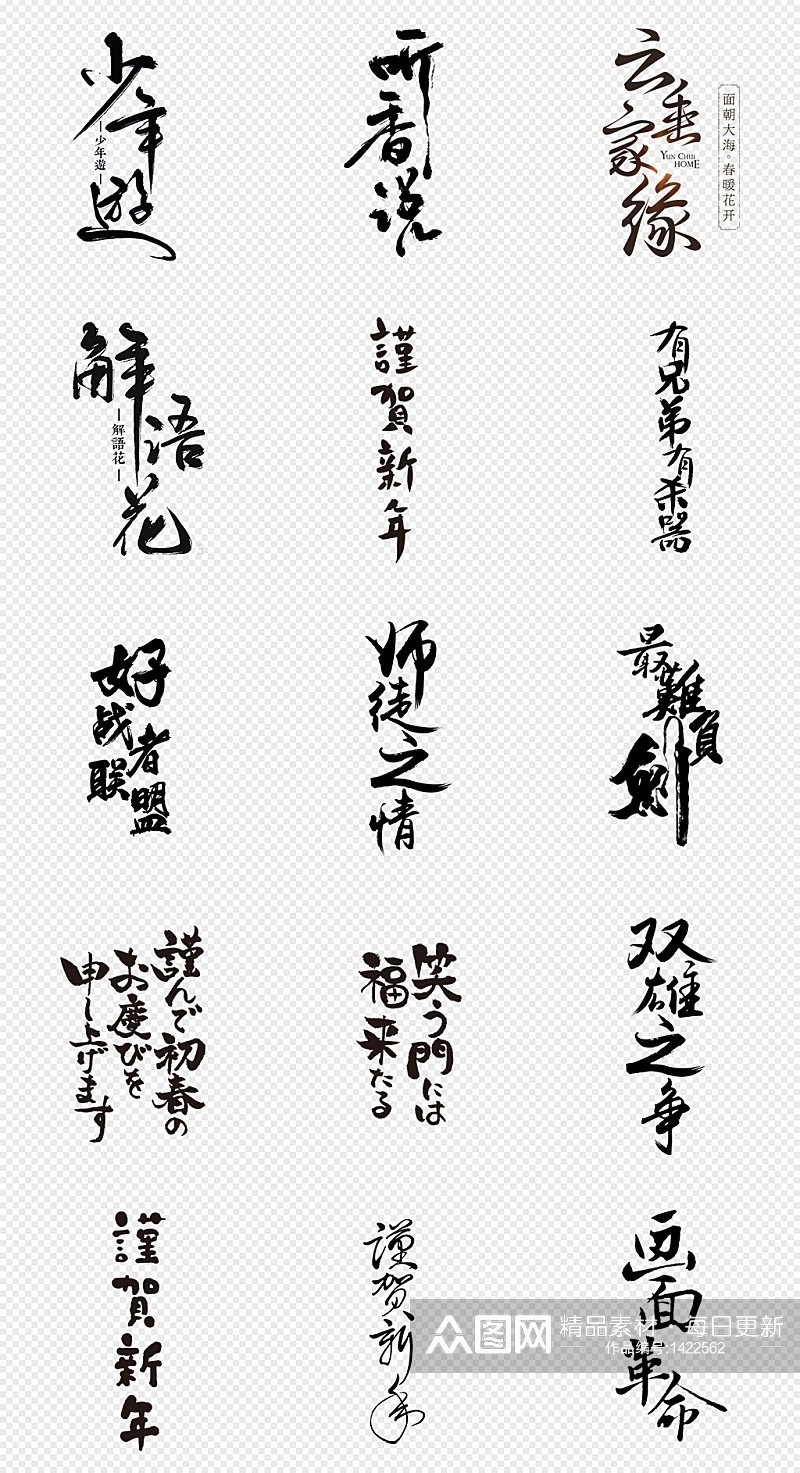 少年遊
少年遊
听香说
云垂家缘
YUN CHUI
HOME
面朝大海。春暖花开
解语花
解語花
謹賀新年
有兄弟有杀器
好战者联盟
师徒之情
最難負
劍
謹んで初春の
お慶びを
申し上げます
笑う門には
福来たる
双雄之争
謹賀新年
謹賀新年
画面革命
众图网
精品素材 每日更新
作品编号:1422562